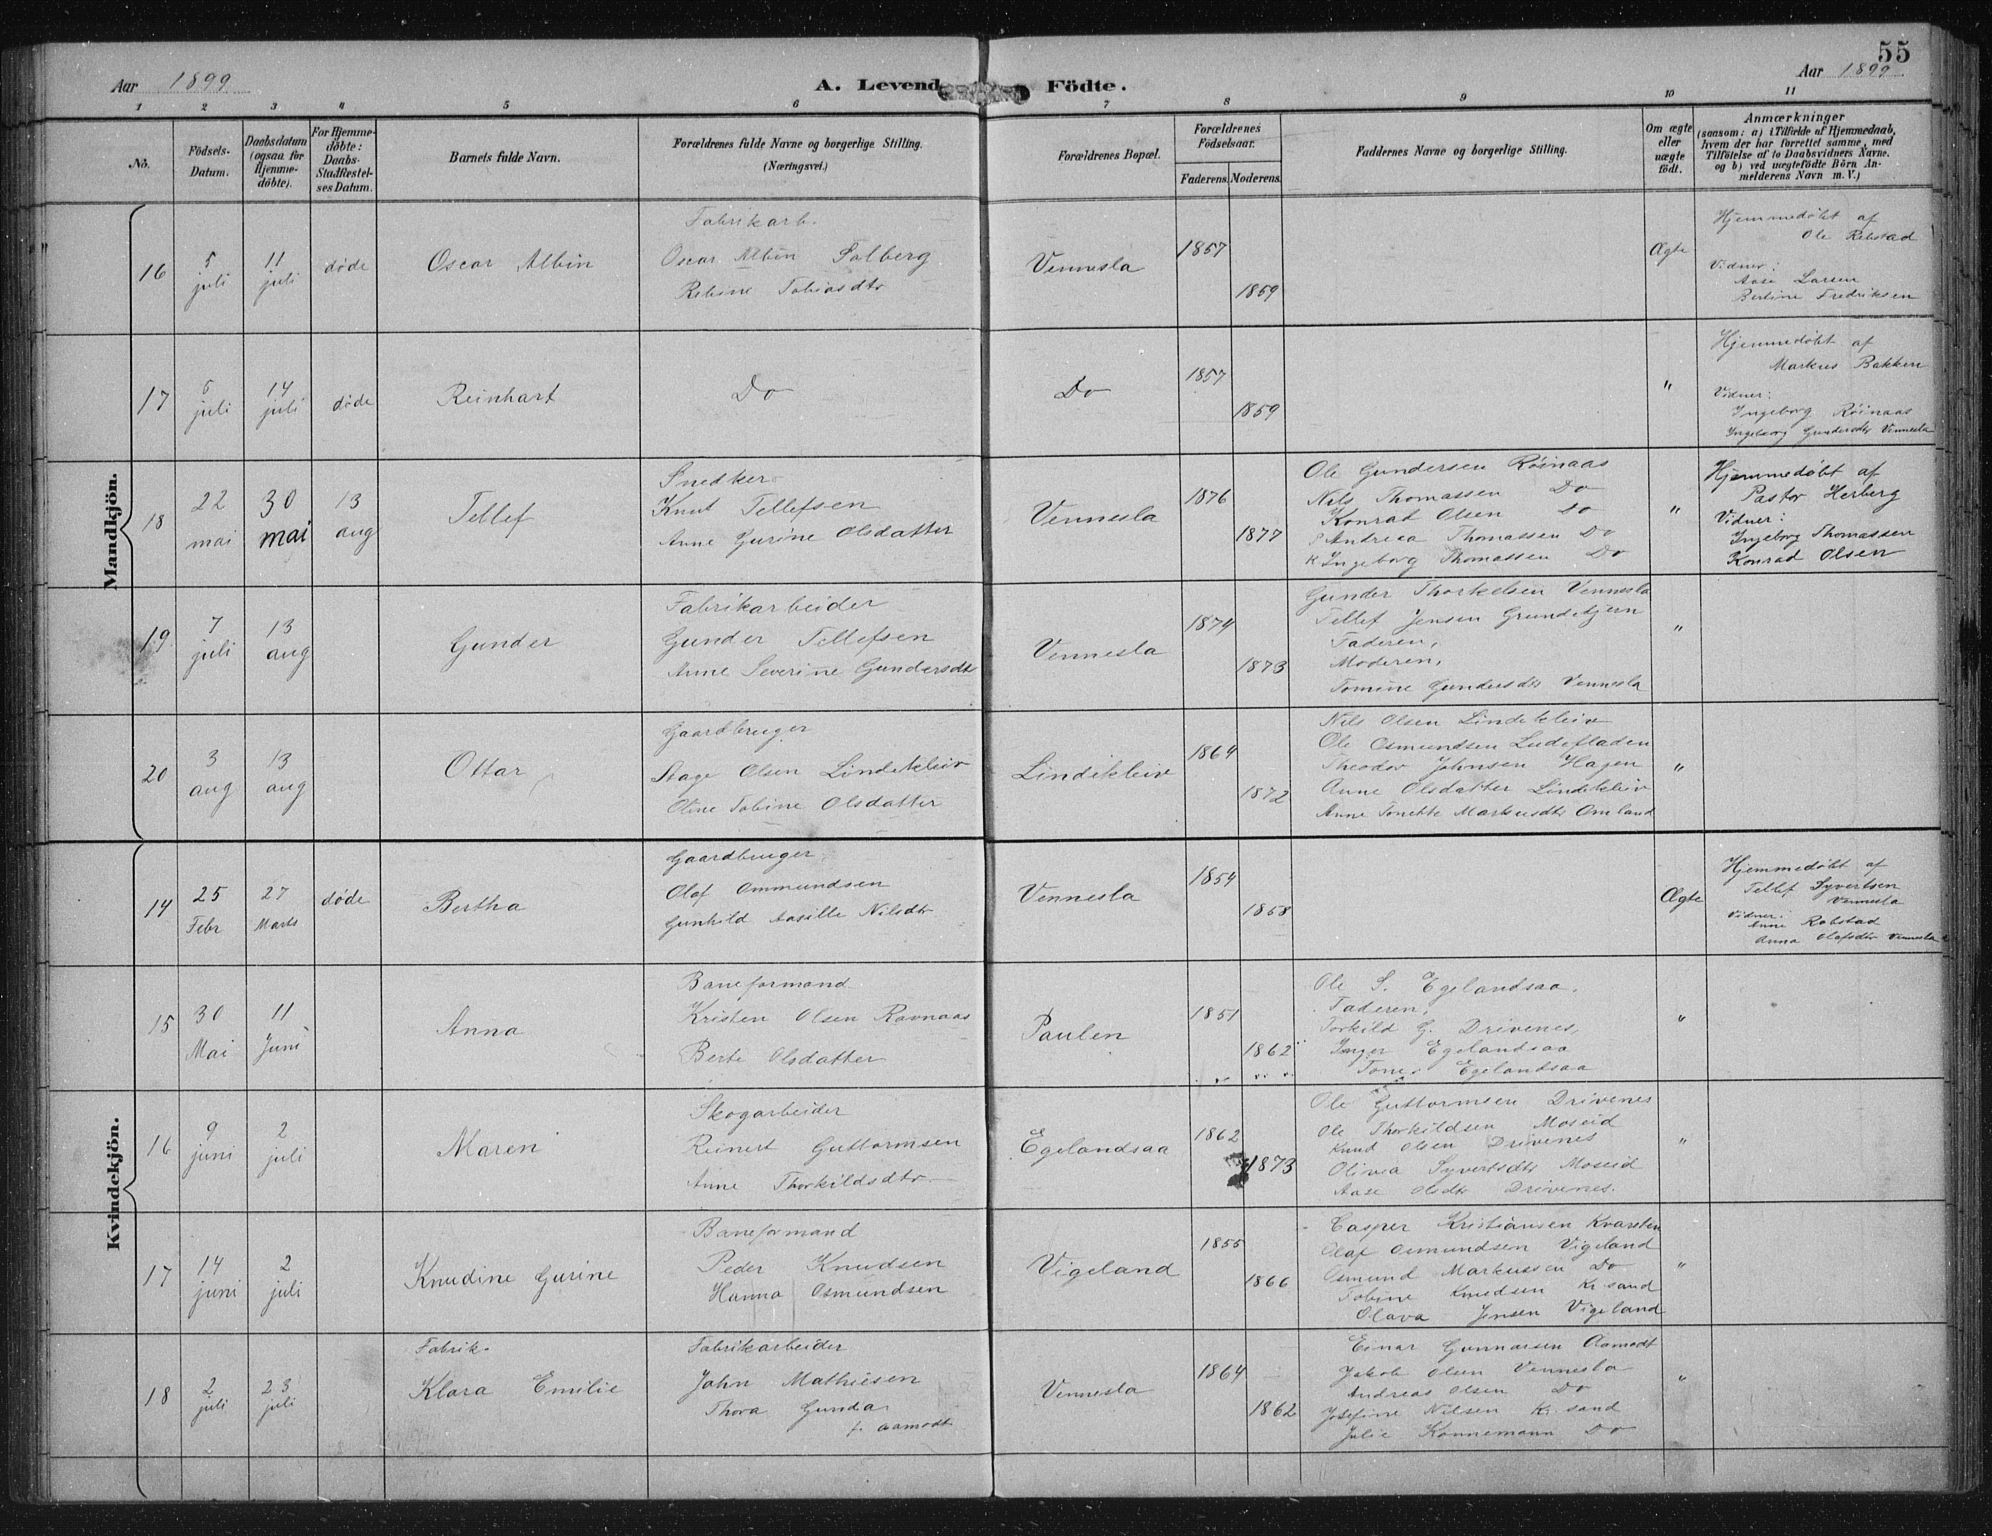 55
Aar 1899
A. Levende Födte.
Aar 1899
1 2 3 4 5 6 7 8 9 10 11
No.
Födsels-Datum.
Daabsdatum (ogsaa for Hjemmedöbte).
For Hjemmedöbte: Daabs-Stadfæstelses Datum.
Barnets fulde Navn.
Forældrenes fulde Navne og borgerlige Stilling.
(Næringsvei.)
Forældrenes Bopæl.
Forældrenes Födselsaar.
Faderens. Moderens.
Faddernes Navne og borgerlige Stilling.
Om ægte eller uægte födt.
Anmærkninger
(saasom: a) i Tilfælde af Hjemmedaab, hvem der har forrettet samme, med Tilföielse af to Daabsvidners Navne. og b) ved uægtefödte Börn Anmelderens Navn m. V.)
Mandkjön.
16 5 juli 11 juli døde Oscar Albin
Fabrikarb.
Oscar Albin Solberg
Rebine Tobiasdtr
Vennesla 1857 1859
Ægte
Hjemmedøbt af
Ole Rebstad
Vidner:
Aase Larsen
Bertine Fredriksen
17 5 juli 14 juli døde Reinhart
Do
Do 1857 1859
"
Hjemmedøbt af
Markus Bakken
Vidner:
Ingeborg Röinaas
Ingeborg Gundersdtr Vennesla
18 22 mai 30 mai 13 aug Tellef
Snedker
Knut Tellefsen
Anne Gurine Olsdatter
Vennesla 1876 1877
Ole Gundersen Röinaas
Nils Thomassen Do
Konrad Olsen Do
Andrea Thomassen Do
Ingeborg Thomassen Do
"
Hjemmedøbt af
Pastor Herberg
Vidner:
Ingeborg Thomassen
Konrad Olsen
19 7 juli 13 aug Gunder
Fabrikarbeider
Gunder Tellefsen
Anne Severine Gundersdtr
Vennesla 1874 1873
Gunder Thorkelsen Vennesla
Tellef Jensen Grundetjern
Faderen,
Moderen,
Tomine Gundersdtr Vennesla
"
20 3 aug 13 aug Ottar
Gaardbruger
Stage Olsen Lindekleiv
Oline Tobine Olsdatter
Lindekleiv 1864 1872
Nils Olsen Lindekleiv
Ole Osmundsen Ludefladen
Theodor Johnsen Hagen
Anne Olsdatter Lindekleiv
Anne Tonette Markusdtr Omland
"
Kvindekjön.
14 25 Febr 27 Marts døde Bertha
Gaardbruger
Olaf Ommundsen
Gunhild Aasille Nilsdtr
Vennesla 1854 1858
Ægte
Hjemmedøbt af
Tellef Syvertsen
Vennesla
Vidner:
Anne Robstad
Anna Olafsdtr Vennesla
15 30 Mai 11 Juni Anna
Baneformand
Kristen Olsen Ravnaas
Berte Olsdatter
Paulen 1851 1862
Ole S. Egelandsaa.
Faderen,
Torkild G. Drivenes,
Inger Egelandsaa
Tone Egelandsaa
"
16 9 juni 2 juli Maren
Skogarbeider
Reinert Guttormsen
Anne Thorkildsdtr
Egelandsaa 1862 1873
Ole Guttormsen Drivenes
Ole Thorkildsen Moseid
Knud Olsen Drivenes
Olivia Syvertsdtr Moseid
Aase Olsdtr Drivenes.
"
17 14 juni 2 juli Knudine Gurine
Baneformand
Peder Knudsen
Hanna Osmundsen
Vigeland 1855 1866
Casper Kristiansen Kvarsten
Olaf Osmundsen Vigeland
Osmund Markussen Do
Tobine Knudsen Kr. sand
Olava Jensen Vigeland
"
18 2 juli 23 juli
Fabrik.
Klara Emilie
Fabrikarbeider
John Mathiesen
Thora Gunda
f. Aamodt
Vennesla 1864 1862
Einar Gunnarsen Aamodt
Jakob Olsen Vennesla
Andreas Olsen Do
Josefine Nilsen Kr. sand
Julie Konnemann Do
"